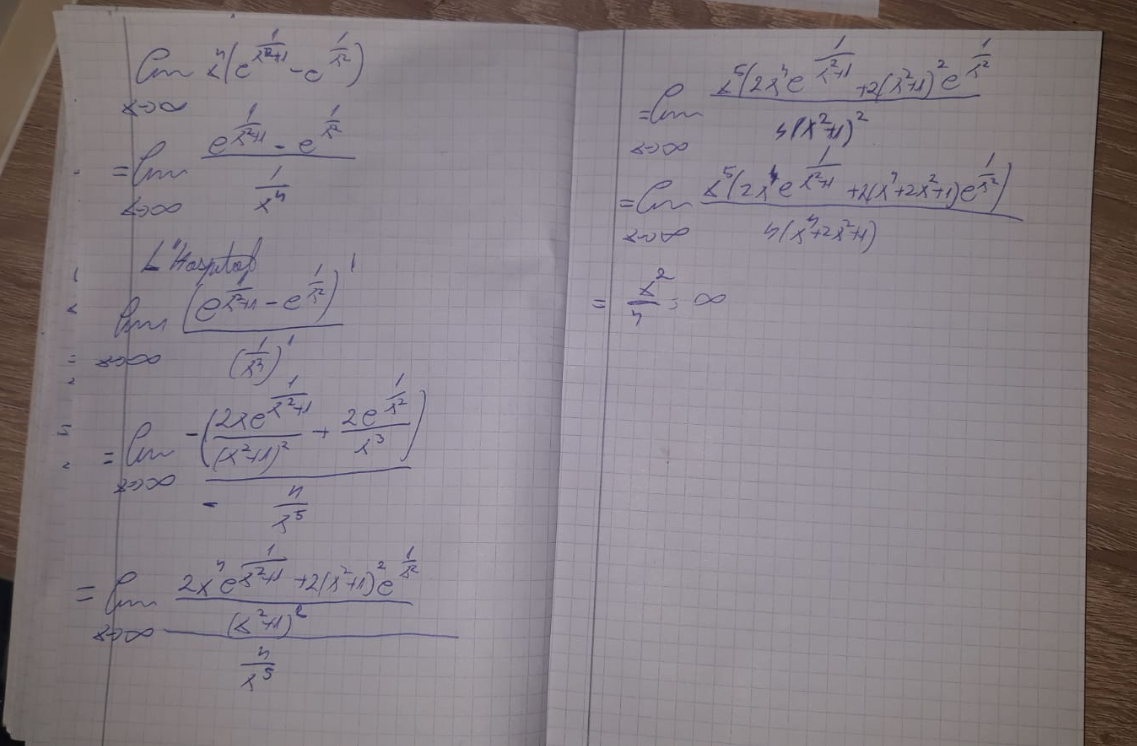 lim x⁴(e^(1/(x²+1)) - e^(1/x²))
x→∞
= lim (e^(1/(x²+1)) - e^(1/x²)) / (1/x⁴)
x→∞
L'Hospital
lim (e^(1/(x²+1)) - e^(1/x²))' / (1/x⁴)'
x→∞
= lim -(2xe^(1/(x²+1)) / (x²+1)² + 2e^(1/x²) / x³) / (- 4/x⁵)
x→∞
= lim ((2x⁴e^(1/(x²+1)) + 2(x²+1)²e^(1/x²)) / (x²+1)²) / (4/x⁵)
x→∞
= lim x⁵(2x⁴e^(1/(x²+1)) + 2(x²+1)²e^(1/x²) / 4(x²+1)²
x→∞
= lim x⁵(2x⁴e^(1/(x²+1)) + 2(x⁴+2x²+1)e^(1/x²)) / 4(x⁴+2x²+1)
x→∞
= x²/4 = ∞